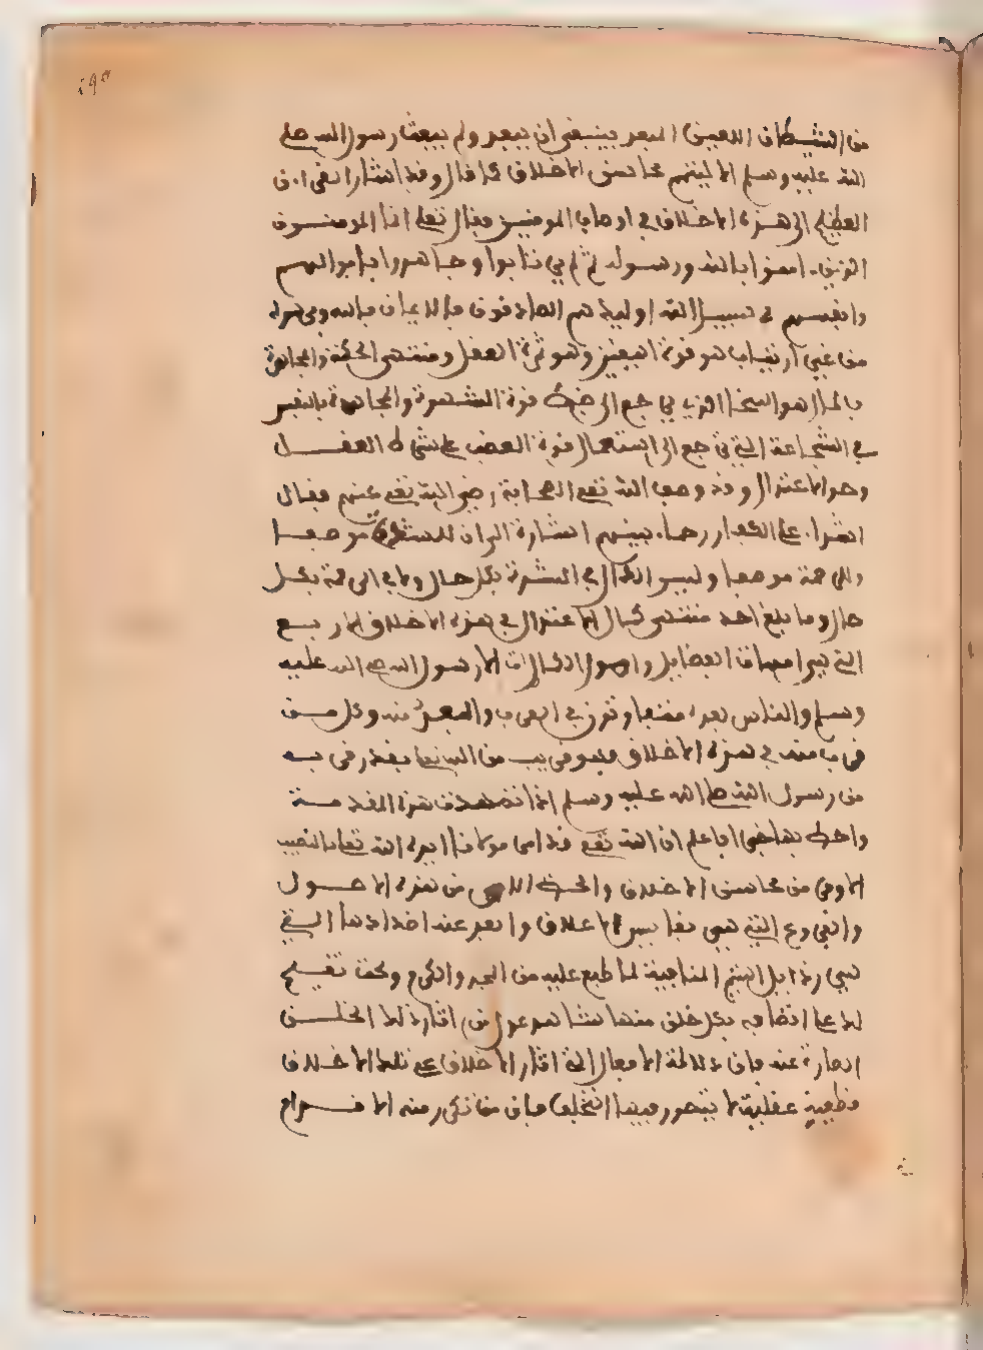 من الشيطان اللعين المبعد فينبغي ان يبعد ولم يبعث رسول الله صلى
الله عليه وسلم الا ليتمم محاسن الاخلاق كما قال وقد اشار القرءان
العظيم الى هذه الاخلاق في اوصاف المومنين فقال تعلى انما المومنون
الذين ءامنوا بالله ورسوله ثم لم يرتابوا وجاهدوا باموالهم
وانفسهم في سبيل الله اوليك هم الصادقون فالايمان بالله وبرسوله
من غير ارتياب هو قوة اليقين وهو ثمرة العقل ومنتهى الحكمة والمجاهدة
بالمال هو السخا الذي يرجع الى ضبط قوة الشهوة والمجاهدة بالنفس
هي الشجاعة التي ترجع الى استعمال قوة الغضب على شرط العقل
وحد الاعتدال وقد وصف الله تعلى الصحابة رضي الله تعلى عنهم فقال
اشداء على الكفار رحماء بينهم اشارة الى ان للشدة موضعا
وللرحمة موضعا وليس الكمال في الشدة بكل حال ولا في الرحمة بكل
حال وما بلغ احد منتهى كمال الاعتدال في هذه الاخلاق الاربع
التي هي امهات الفضايل واصول الكمالات الا رسول الله صلى الله عليه
وسلم والناس بعده متفاوتون في القرب والبعد منه وكل من
قرب منه في هذه الاخلاق فهو قريب من الله تعلى بقدر قربه
من رسول الله صلى الله عليه وسلم اذا تمهدت هذه المقدمة
واحطت بها خبرا فاعلم ان الله تعلى قد امد مولانا ايده الله تعلى بالنصيب
الاوفر من محاسن الاخلاق والحظ من هذه الاصول
والفروع التي هي نفايس الاعلاق وابعد عنه اضدادها التي
هي رذايل الشيم المنافية لما طبع عليه من المجد والكرم وكفت تقسيم
لدعا اتصافه بكل خلق منها شاهد عدل من اثار ذلك الخلق
الصادرة عنه فان دلالة الافعال التي اثار الاخلاق على تلك الاخلاق
قطعية عقلية لا يتصور فيها التخلف فان من تكررمنه الاقدام